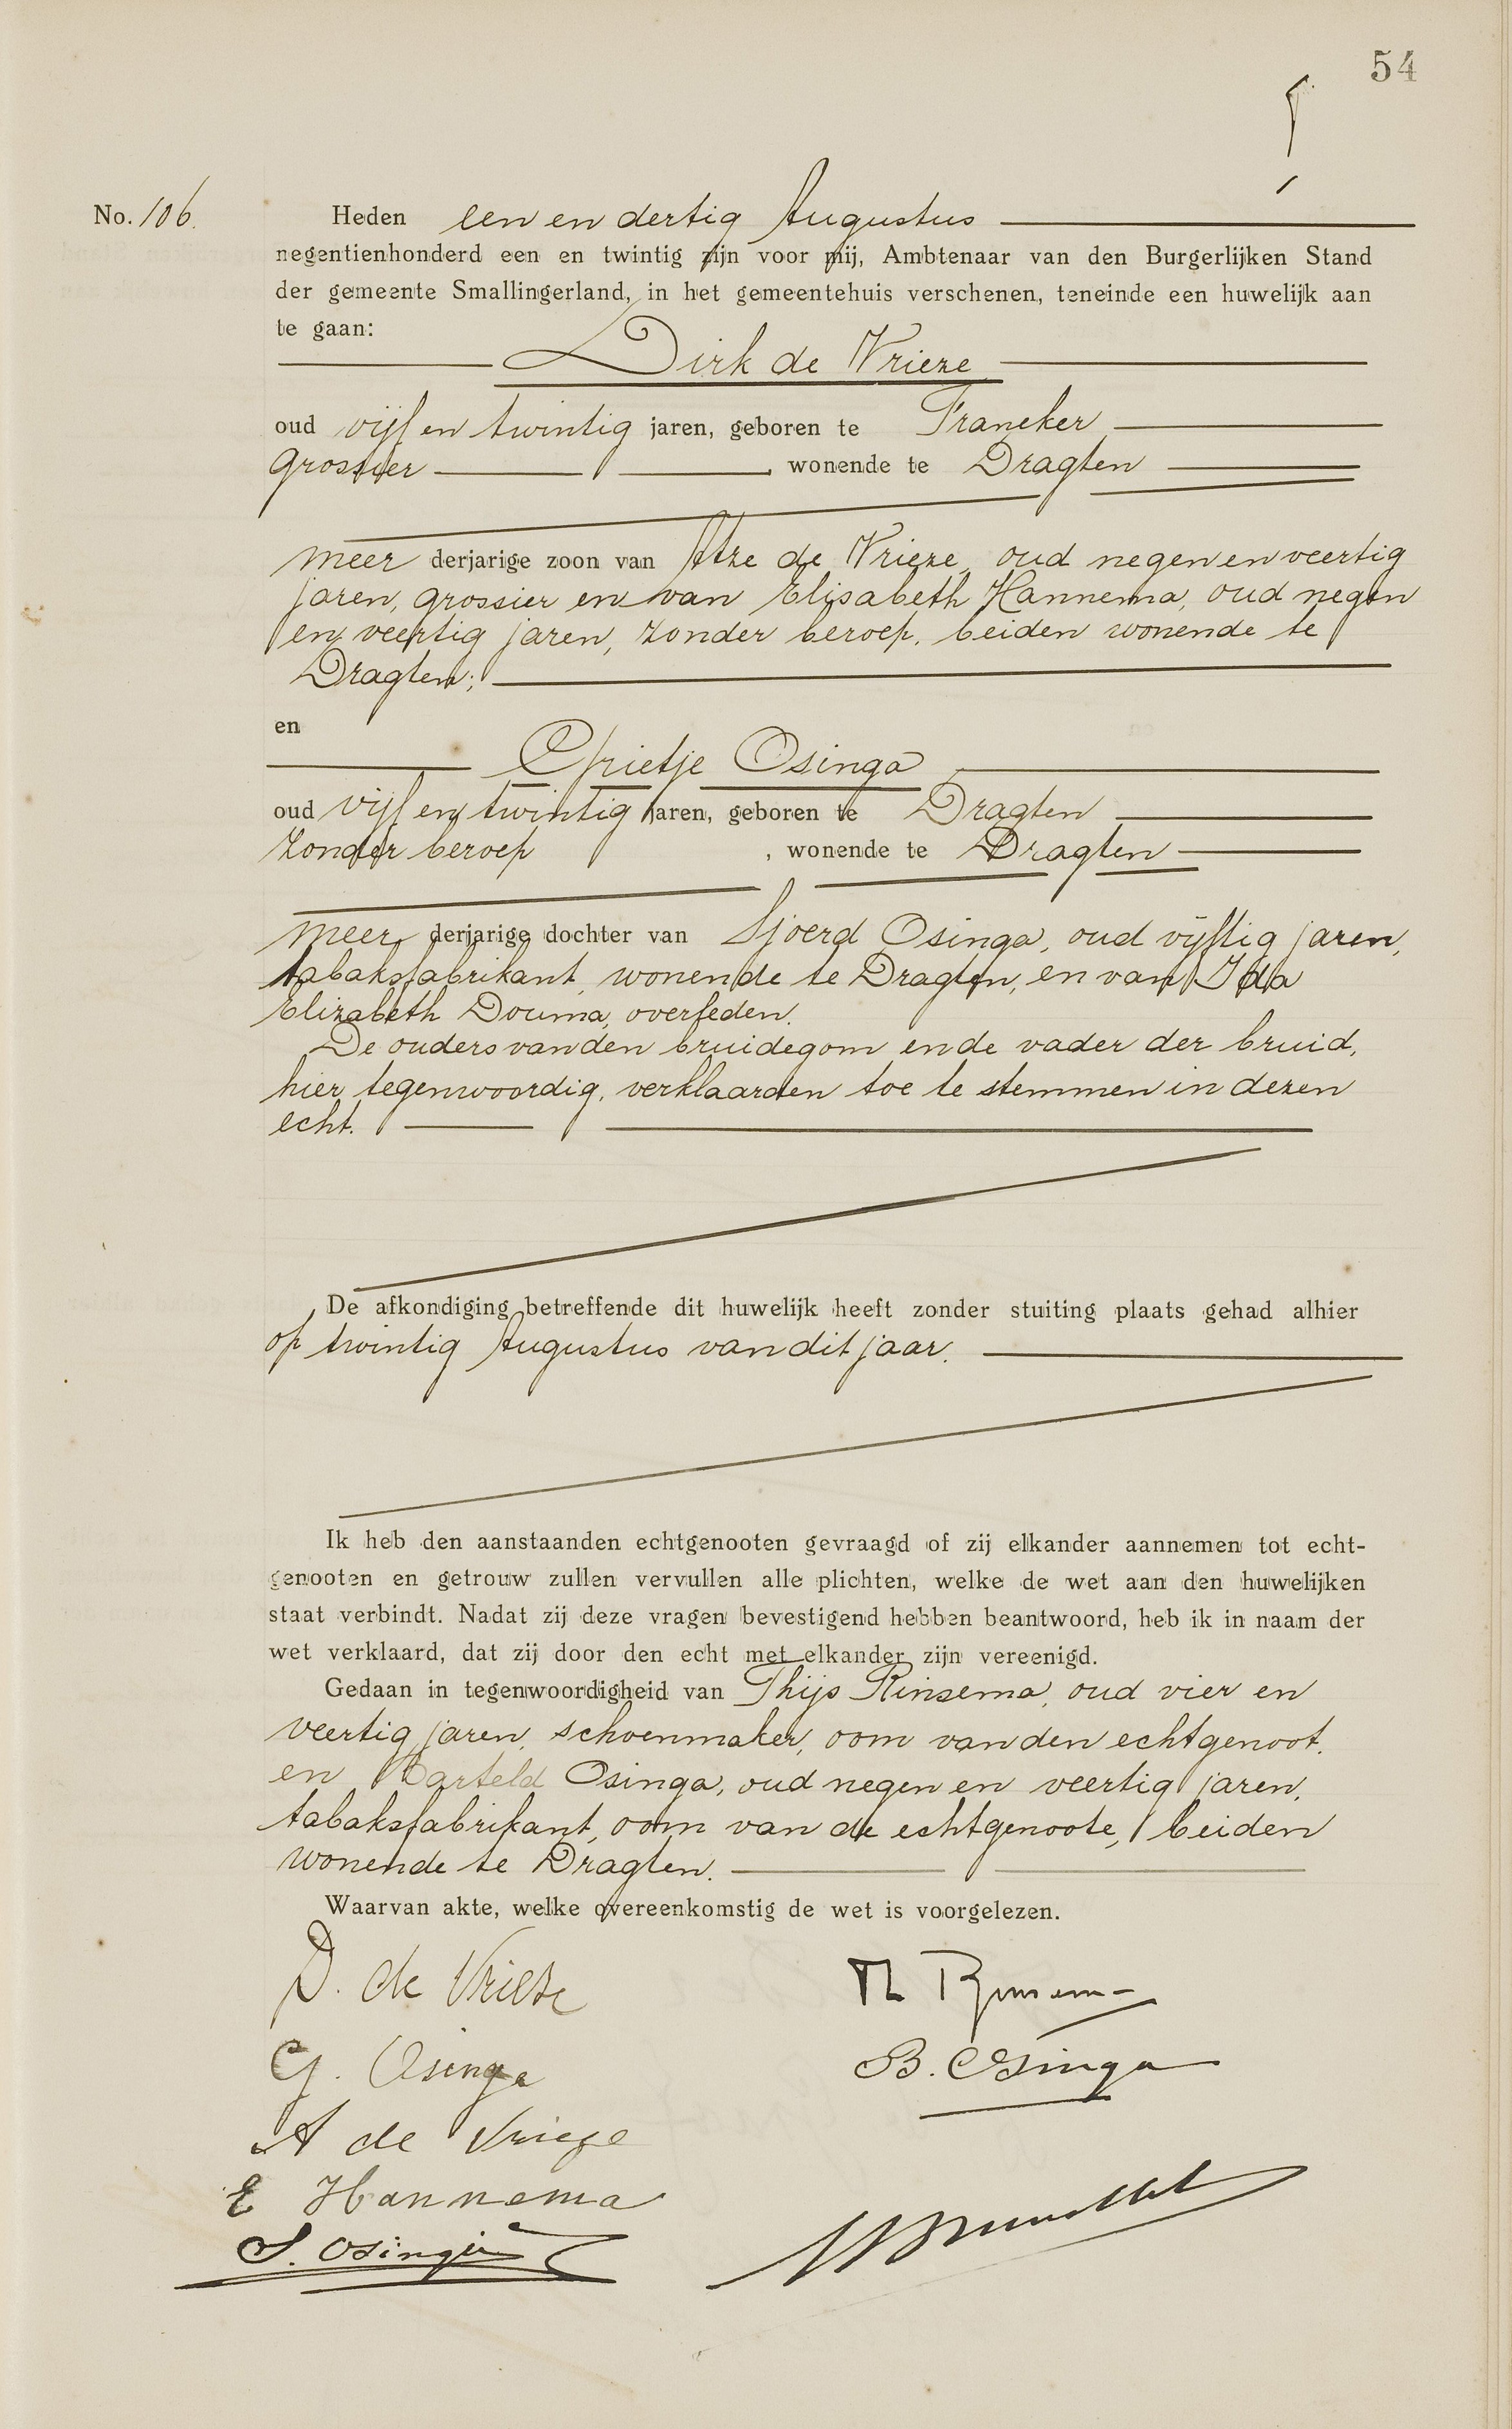 54
No. 106.
Heden een en dertig Augustus
negentienhonderd een en twintig zijn voor mij, Ambtenaar van den Burgerlijken Stand
der gemeente Smallingerland, in het gemeentehuis verschenen, teneinde een huwelijk aan
te gaan:
Dirk de Vrieze
oud vijf en twintig jaren, geboren te Franeker
grossier, wonende te Dragten
meer derjarige zoon van Atze de Vrieze, oud negen en veertig
jaren, grossier en van Elisabeth Hannema, oud negen
en veertig jaren, zonder beroep, beiden wonende te
Dragten;
en
Grietje Osinga
oud vijf en twintig jaren, geboren te Dragten
zonder beroep, wonende te Dragten
meer derjarige dochter van Sjoerd Osinga, oud vijftig jaren,
tabaksfabrikant, wonende te Dragten, en van Ida
Elizabeth Douma, overleden.
De ouders van den bruidegom en de vader der bruid,
hier tegenwoordig, verklaarden toe te stemmen in dezen
echt.
De afkondiging betreffende dit huwelijk heeft zonder stuiting plaats gehad alhier
op twintig Augustus van dit jaar.
Ik heb den aanstaanden echtgenooten gevraagd of zij elkander aannemen tot echt-
genooten en getrouw zullen vervullen alle plichten, welke de wet aan den huwelijken
staat verbindt. Nadat zij deze vragen bevestigend hebben beantwoord, heb ik in naam der
wet verklaard, dat zij door den echt met elkander zijn vereenigd.
Gedaan in tegenwoordigheid van Thijs Rinsema, oud vier en
veertig jaren, schoenmaker, oom van den echtgenoot,
en Barteld Osinga, oud negen en veertig jaren,
tabaksfabrikant, oom van de echtgenoote, beiden
wonende te Dragten.
Waarvan akte, welke overeenkomstig de wet is voorgelezen.
D. de Vrieze
Th Rinsema
G. Osinga
B. Osinga
A de Vrieze
E Hannema
S. Osinga